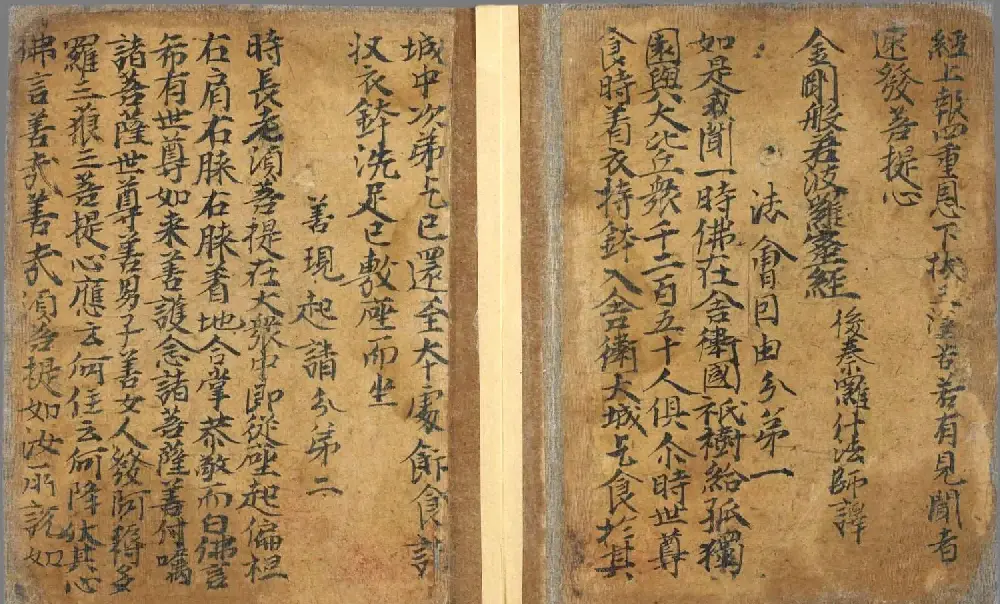 經上報四重恩下救三塗苦若有見聞者
速發菩提心
金剛般若波羅蜜經
後秦羅什法師譯
法會因由分第一
如是我聞一時佛在舍衛國祇樹給孤獨
園與大比丘衆千二百五十人俱尒時世尊
食時着衣持鉢入舍衛大城乞食於其
城中次弟乞已還至本處飯食訖
収衣鉢洗足已敷座而坐
善現起請分弟二
時長老須菩提在大衆中即從座起偏袒
右肩右膝右膝着地合掌恭敬而白佛言
希有世尊如来善護念諸菩薩善付囑
諸菩薩世尊善男子善女人發阿耨多
羅三藐三菩提心應云何住云何降伏其心
佛言善哉善哉須菩提如汝所說如